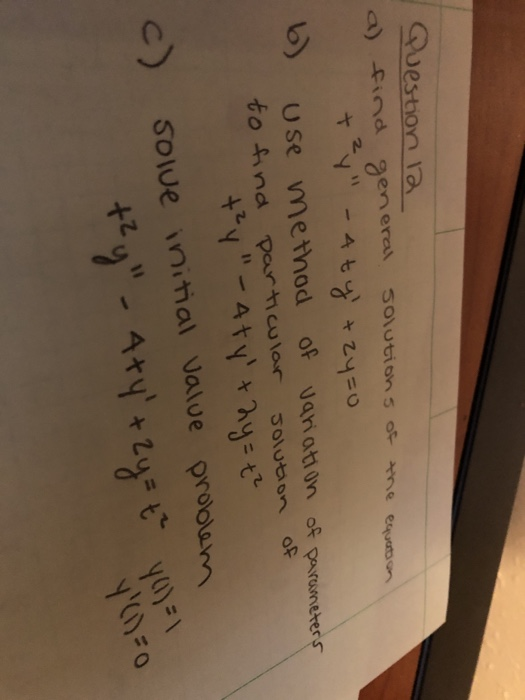 Question 12
a) find general solutions of the equation
t²y" - 4ty' + 2y = 0
b) use method of variation of parameters
to find particular solution of
t²y" - 4ty' + 2y = t²
c) solve initial value problem
t²y" - 4ty' + 2y = t² y(1) = 1
y'(1) = 0